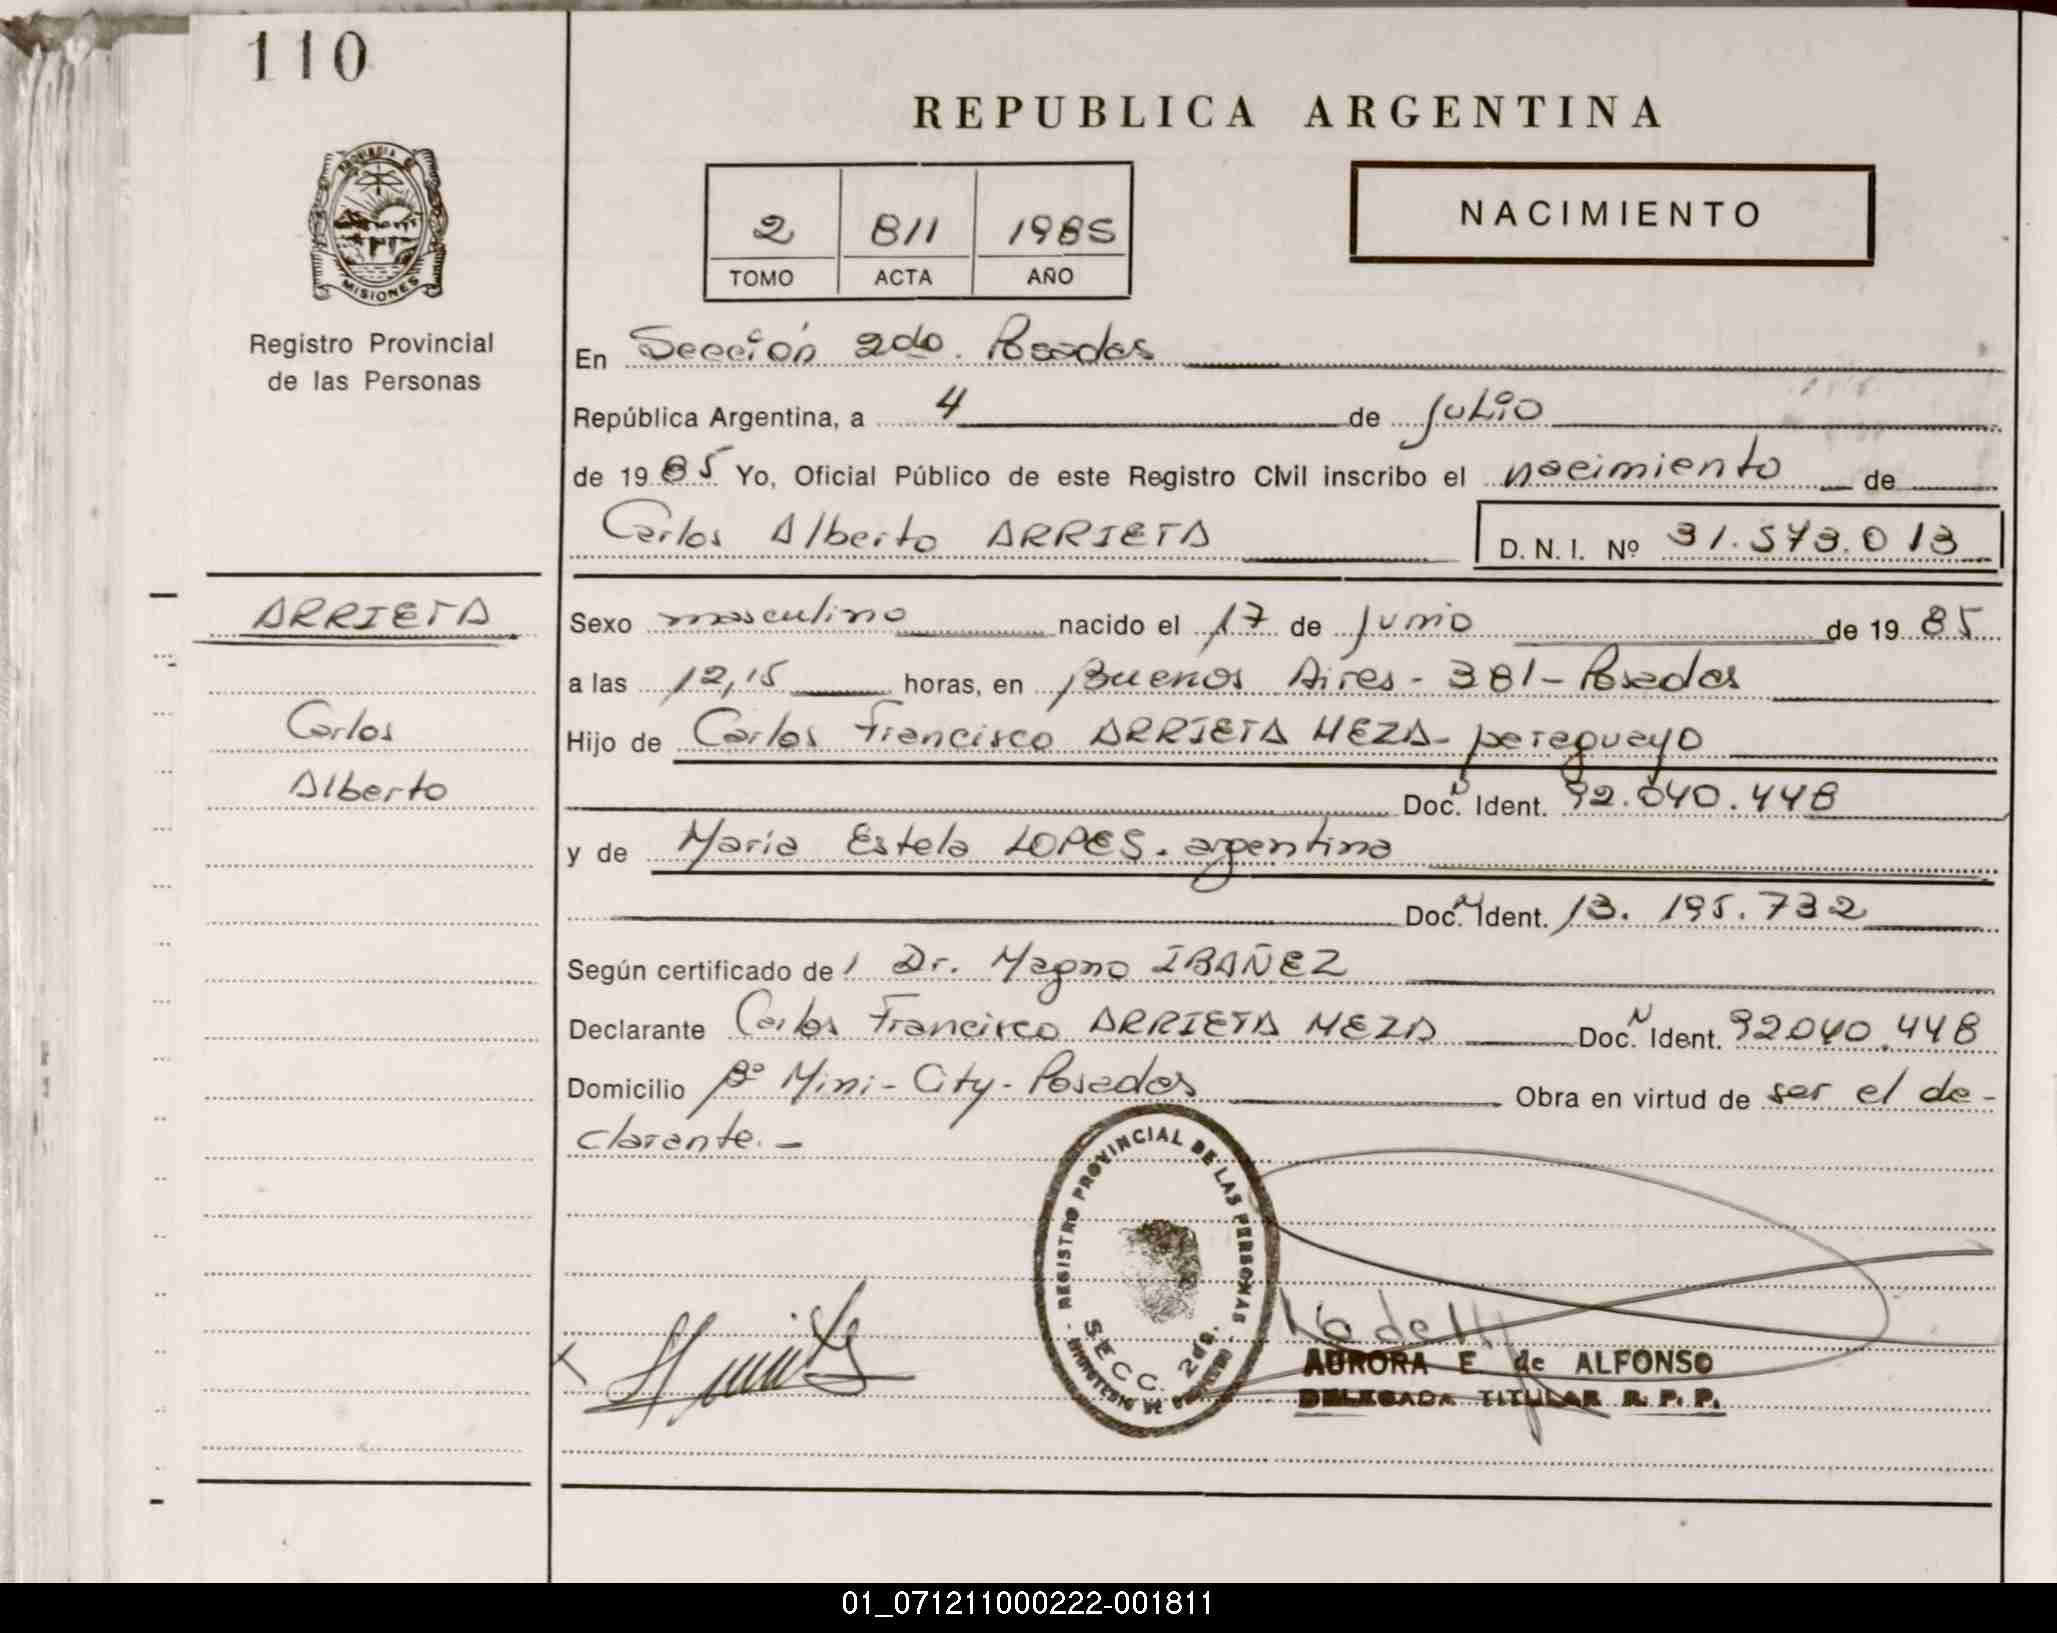 110
REPUBLICA ARGENTINA
PROVINCIA DE
MISIONES
2 811 1985
TOMO ACTA AÑO
NACIMIENTO
Registro Provincial
de las Personas
En Sección 2do. Posadas
República Argentina, a 4 de Julio
de 1985 Yo, Oficial Público de este Registro Civil inscribo el nacimiento de
Carlos Alberto ARRIETA D. N. I. Nº 31.573.013
ARRIETA
Carlos
Alberto
Sexo masculino nacido el 17 de Junio de 1985
a las 12,15 horas, en Buenos Aires - 381 - Posadas
Hijo de Carlos Francisco ARRIETA MEZA - paraguayo
Doc. N Ident. 92.040.448
y de María Estela LOPES. argentina
Doc. N Ident. 13.195.732
Según certificado del Dr. Magno IBAÑEZ
Declarante Carlos Francisco ARRIETA MEZA Doc. N Ident. 92040.448
Domicilio Bº Mini-City-Posadas Obra en virtud de ser el de-
clarante.-
REGISTRO PROVINCIAL DE LAS PERSONAS
SECC. 2da.
MINISTERIO DE GOBIERNO
AURORA E. de ALFONSO
DELEGADA TITULAR R. P. P.
01_071211000222-001811